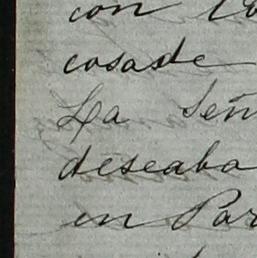 con
cosade
La Señ
deseaba
en Par